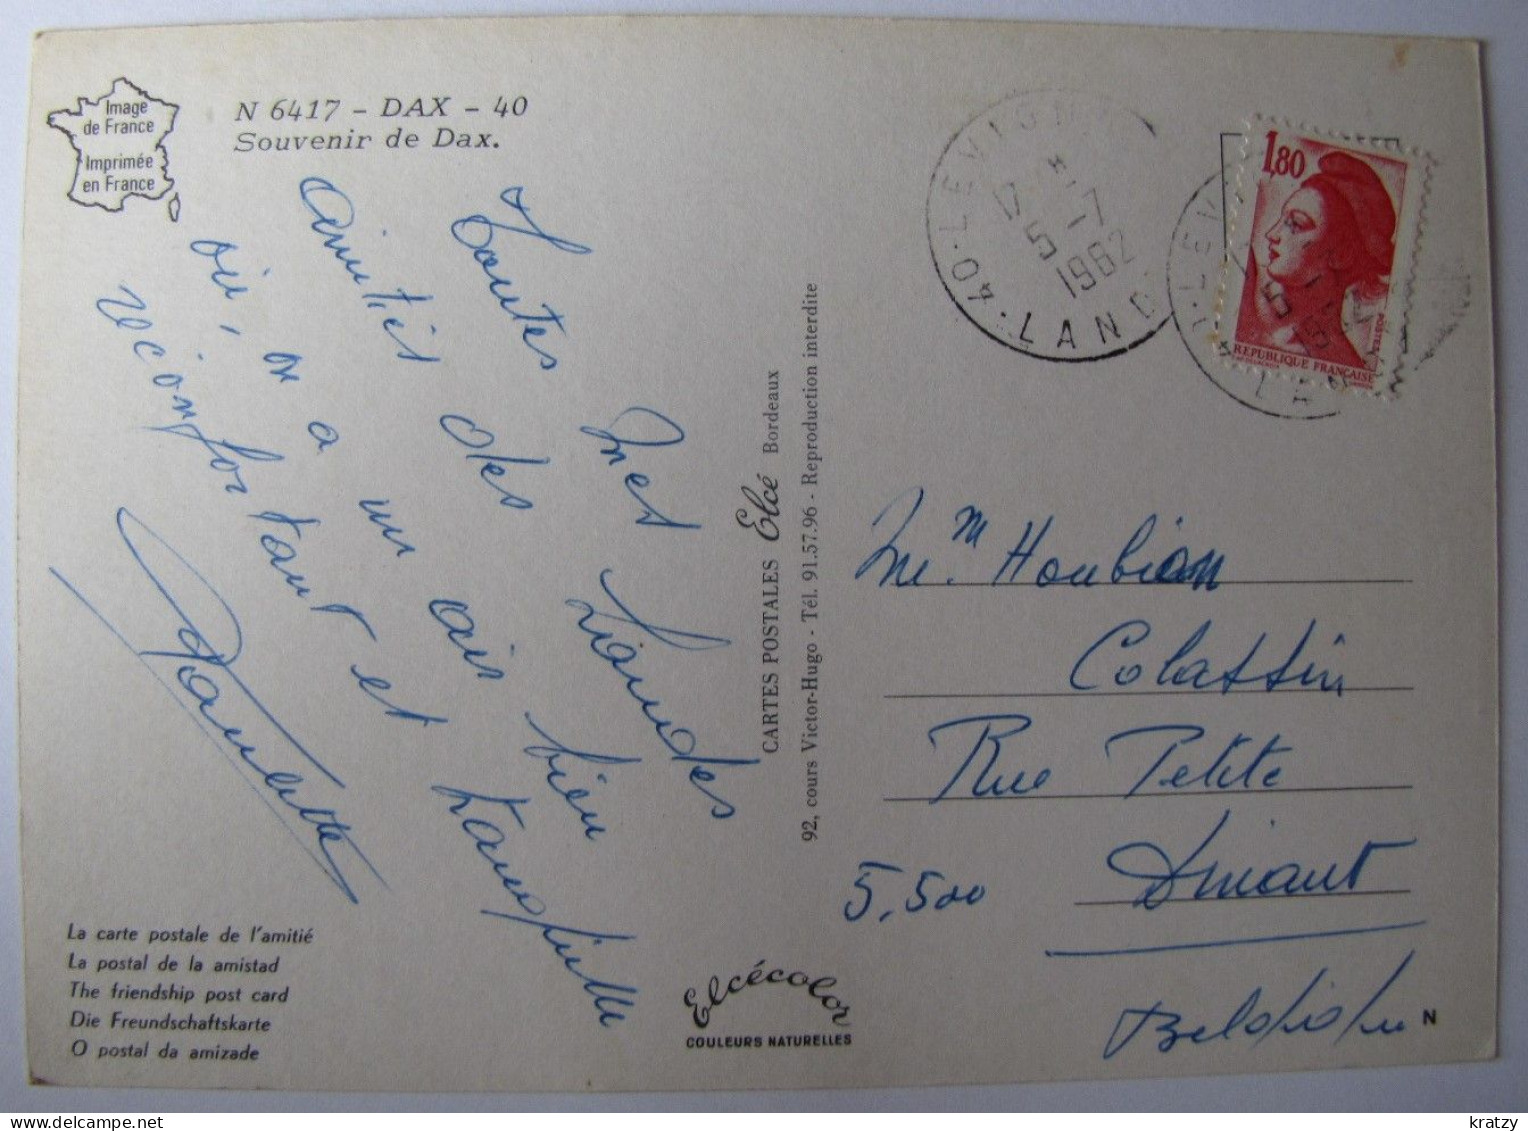 Image
de France
Imprimée
en France
N 6417 – DAX – 40
Souvenir de Dax.
Toutes mes
amitiés des Landes
où, on a un air bien
réconfortant et tranquille
Paulette
La carte postale de l'amitié
La postal de la amistad
The friendship post card
Die Freundschaftskarte
O postal da amizade
CARTES POSTALES Elcé Bordeaux
92, cours Victor-Hugo - Tél. 91.57.96 - Reproduction interdite
Elcécolor
COULEURS NATURELLES
40 · LEVIGN
17
5 - 7
1982
LAND
1,80
POSTES
REPUBLIQUE FRANÇAISE
Mme. Houbion
Colassin
Rue Petite
5.500 Dinant
Belgique
N
kratzy